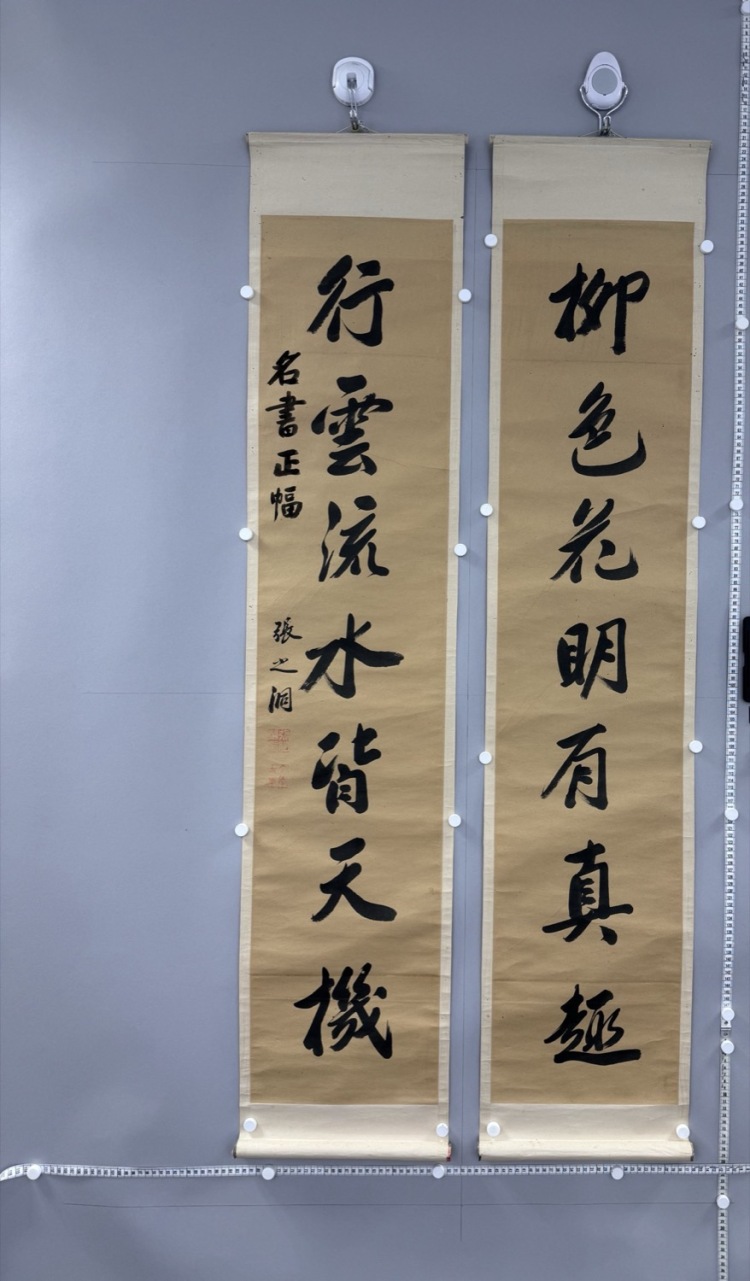 柳色花明有真趣
行雲流水皆天機
名書正幅
張之洞